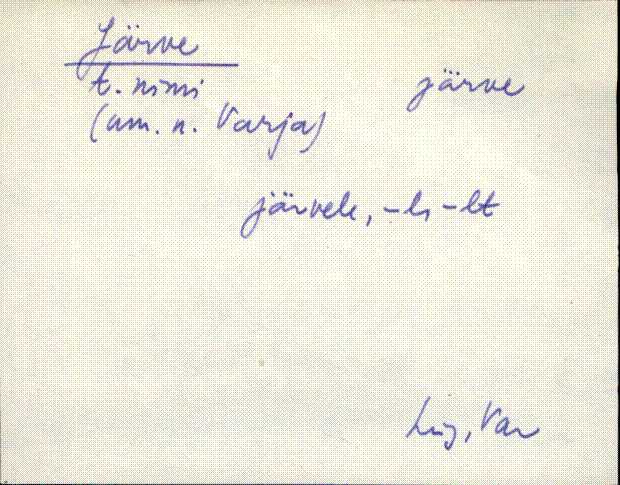 Järve
t. nimi järve
(um. n. Varja)
järvele, -l, -lt
Lüg, Var